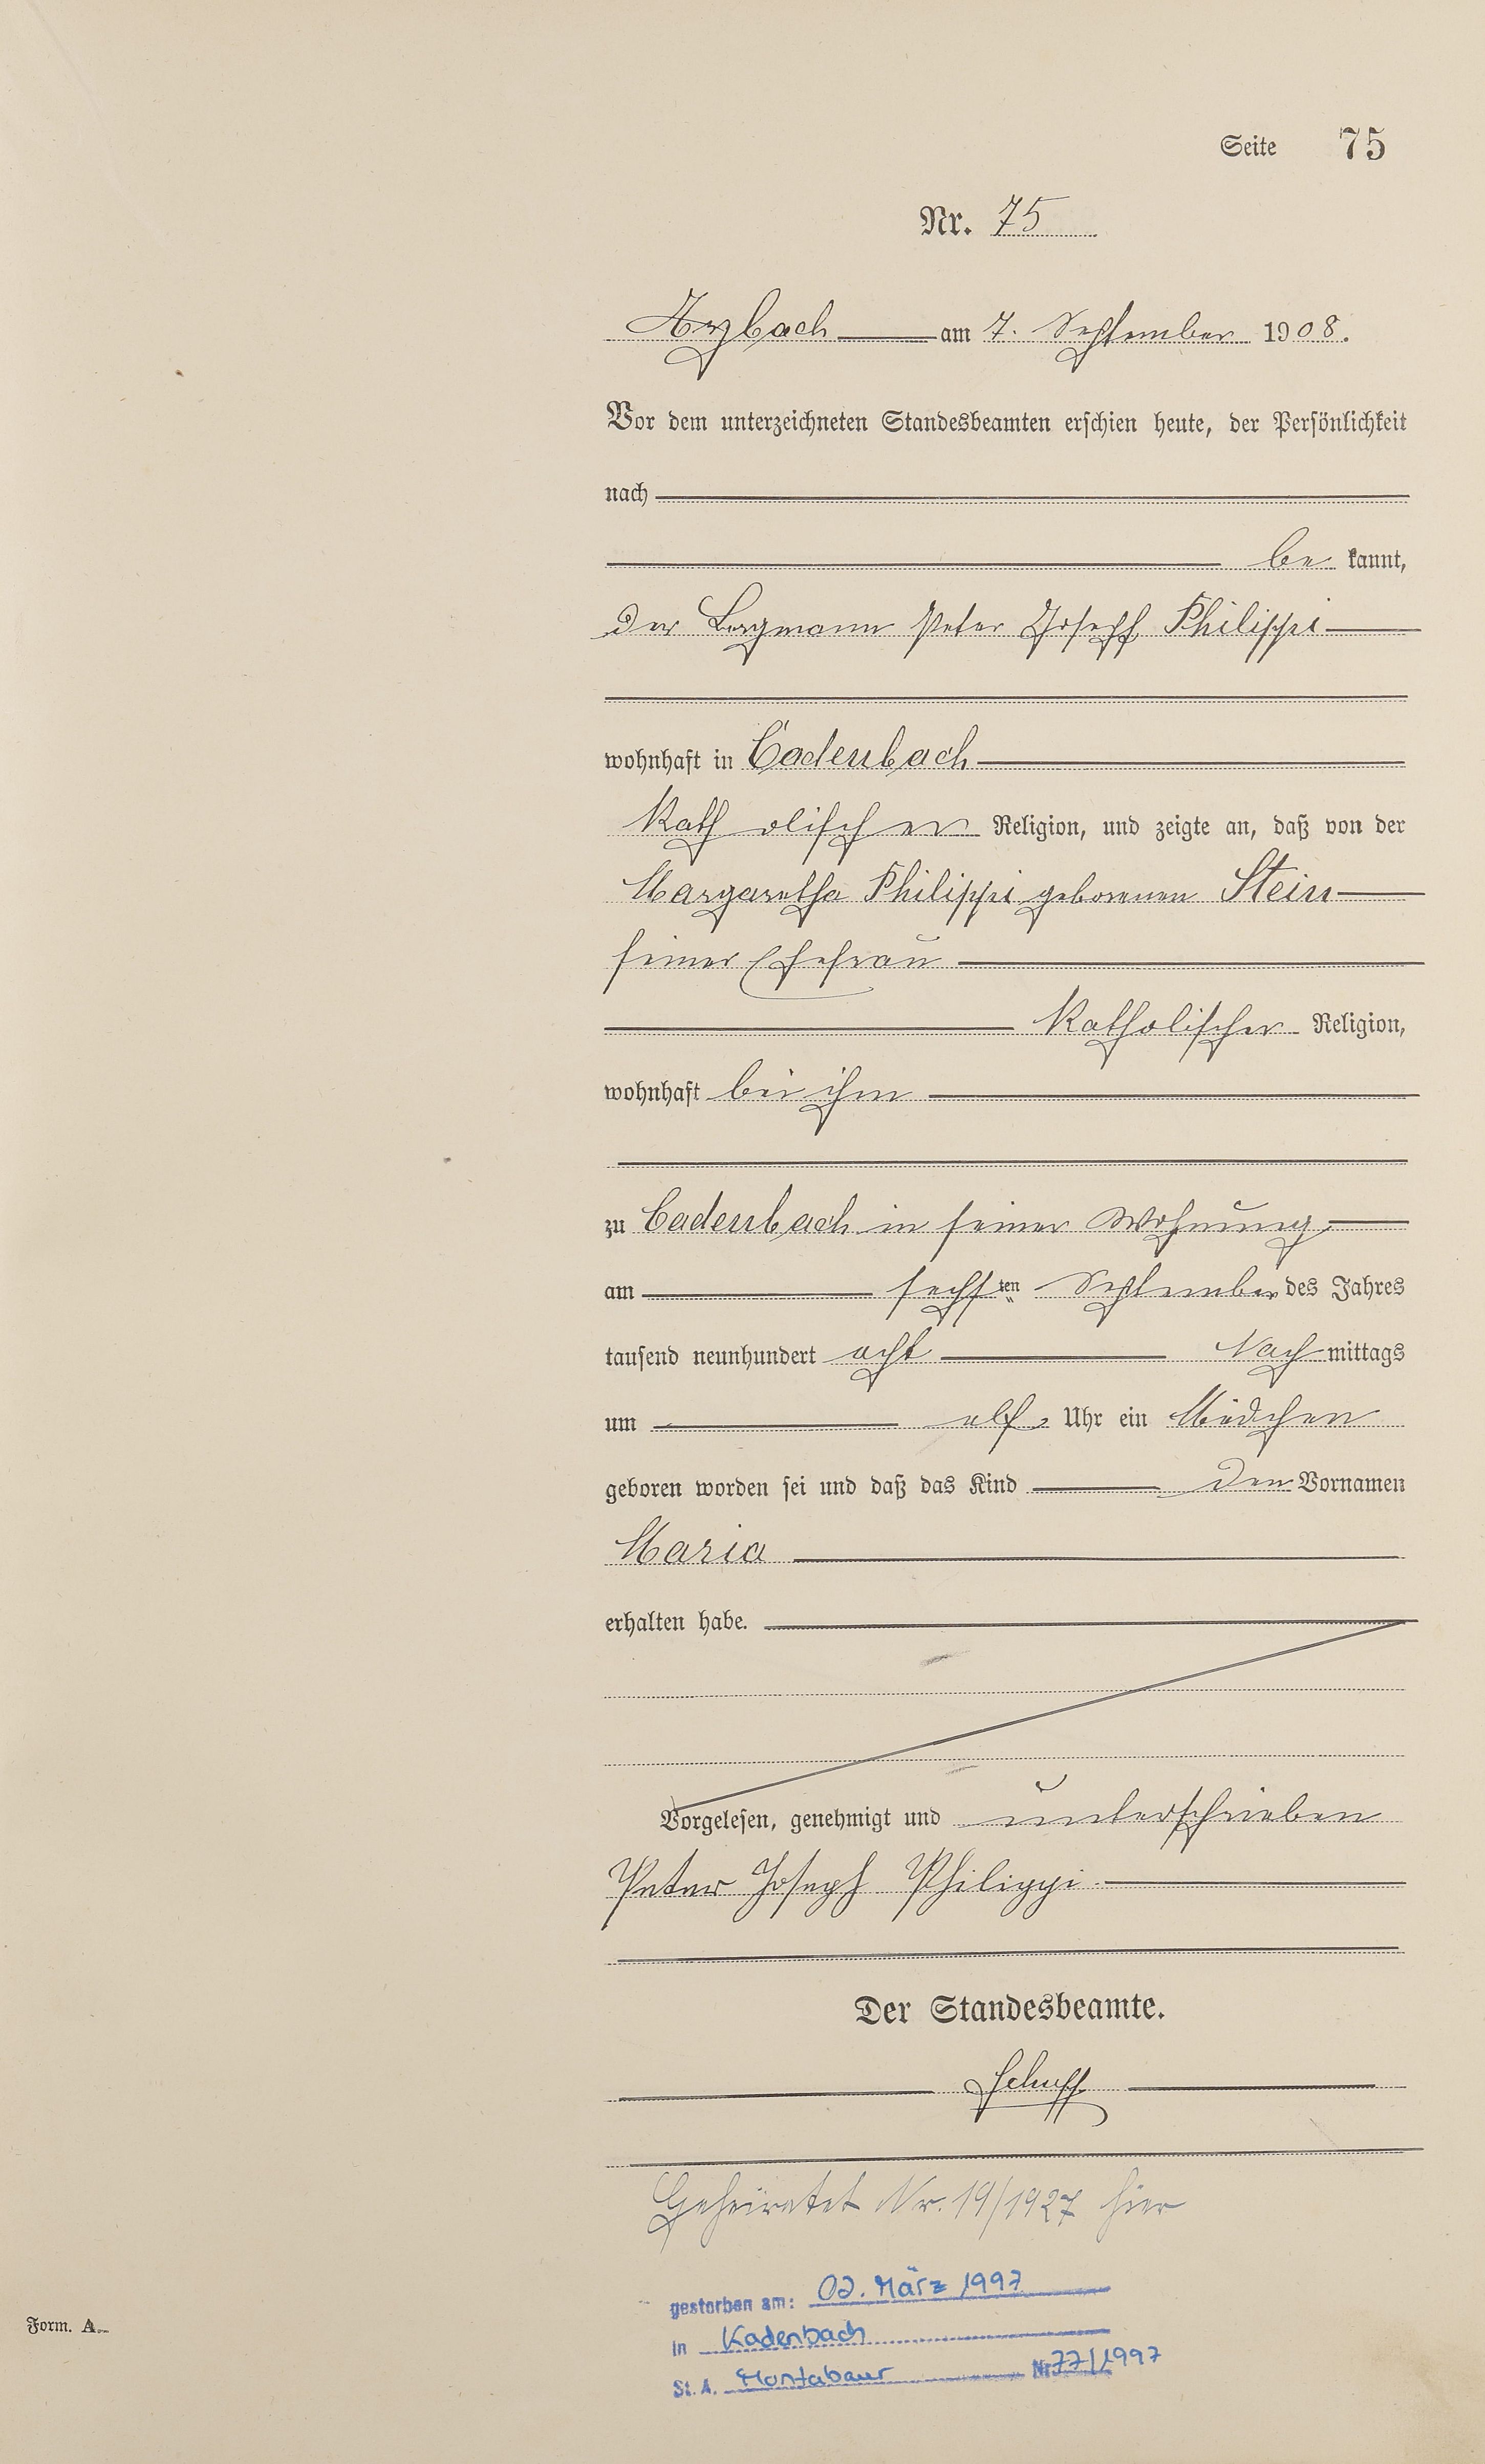 Seite 75
Nr. 75
Arzbach am 7. September 1908.
Vor dem unterzeichneten Standesbeamten erschien heute, der Persönlichkeit
nach
be kannt,
der Bergmann Peter Joseph Philippi
wohnhaft in Cadenbach
kath olischer Religion, und zeigte an, daß von der
Margaretha Philippi geborenen Stein
seiner Ehefrau
katholischer Religion,
wohnhaft bei ihm
zu Cadenbach in seiner Wohnung
am sechsten September des Jahres
tausend neunhundert acht Nach mittags
um elf Uhr ein Mädchen
geboren worden sei und daß das Kind den Vornamen
Maria
erhalten habe.
Vorgelesen, genehmigt und unterschrieben
Peter Joseph Philippi
Der Standesbeamte.
Geheiratet Nr. 19/1927 hier
gestorben am: 02. März 1997
in Kadenbach
St. A. Montabaur Nr 77/1997
Form. A.